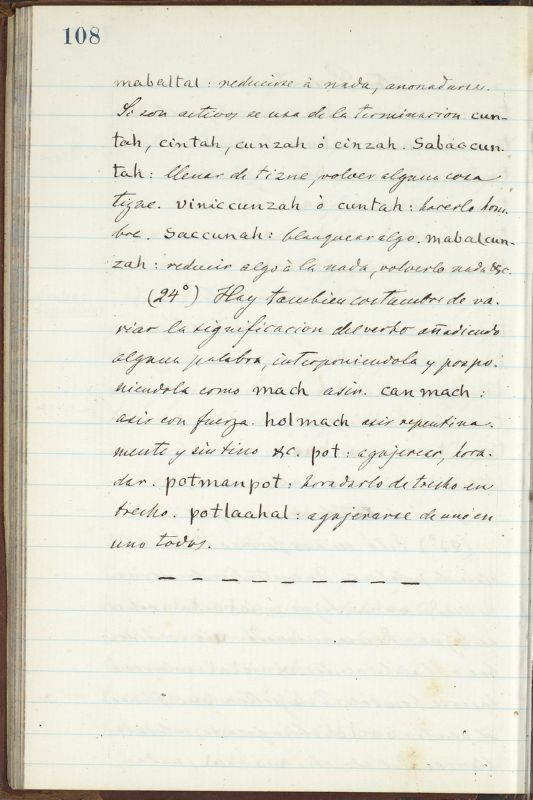 108
mabaltal: reducirse à nada, anonadarse.
Si son activos se usa de la terminacion cun-
tah, cintah, cunzah ó cinzah. Sabaccun-
tah: llenar de tizne, volver alguna cosa
tizne. viniccunzah ò cuntah: hacerlo hom-
bre. saccunah: blanquear algo. mabalcun-
zah: reducir algo à la nada, volverlo nada &c.
(24°) Hay tambien costumbre de va-
riar la significacion del verbo añadiendo
alguna palabra, interponiendola y pospo-
niendola como mach asir. canmach:
asir con fuerza. holmach asir repentina-
mente y sin tino &c. pot: agujerear, hora-
dar. potmanpot: horadarlo de trecho en
trecho. potlaahal: agujerarse de uno en
uno todos.